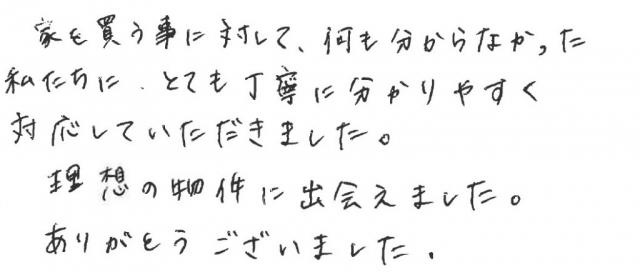 家を買う事に対して、何も分からなかった
私たちに、とても丁寧に分かりやすく
対応していただきました。
理想の物件に出会えました。
ありがとうございました。